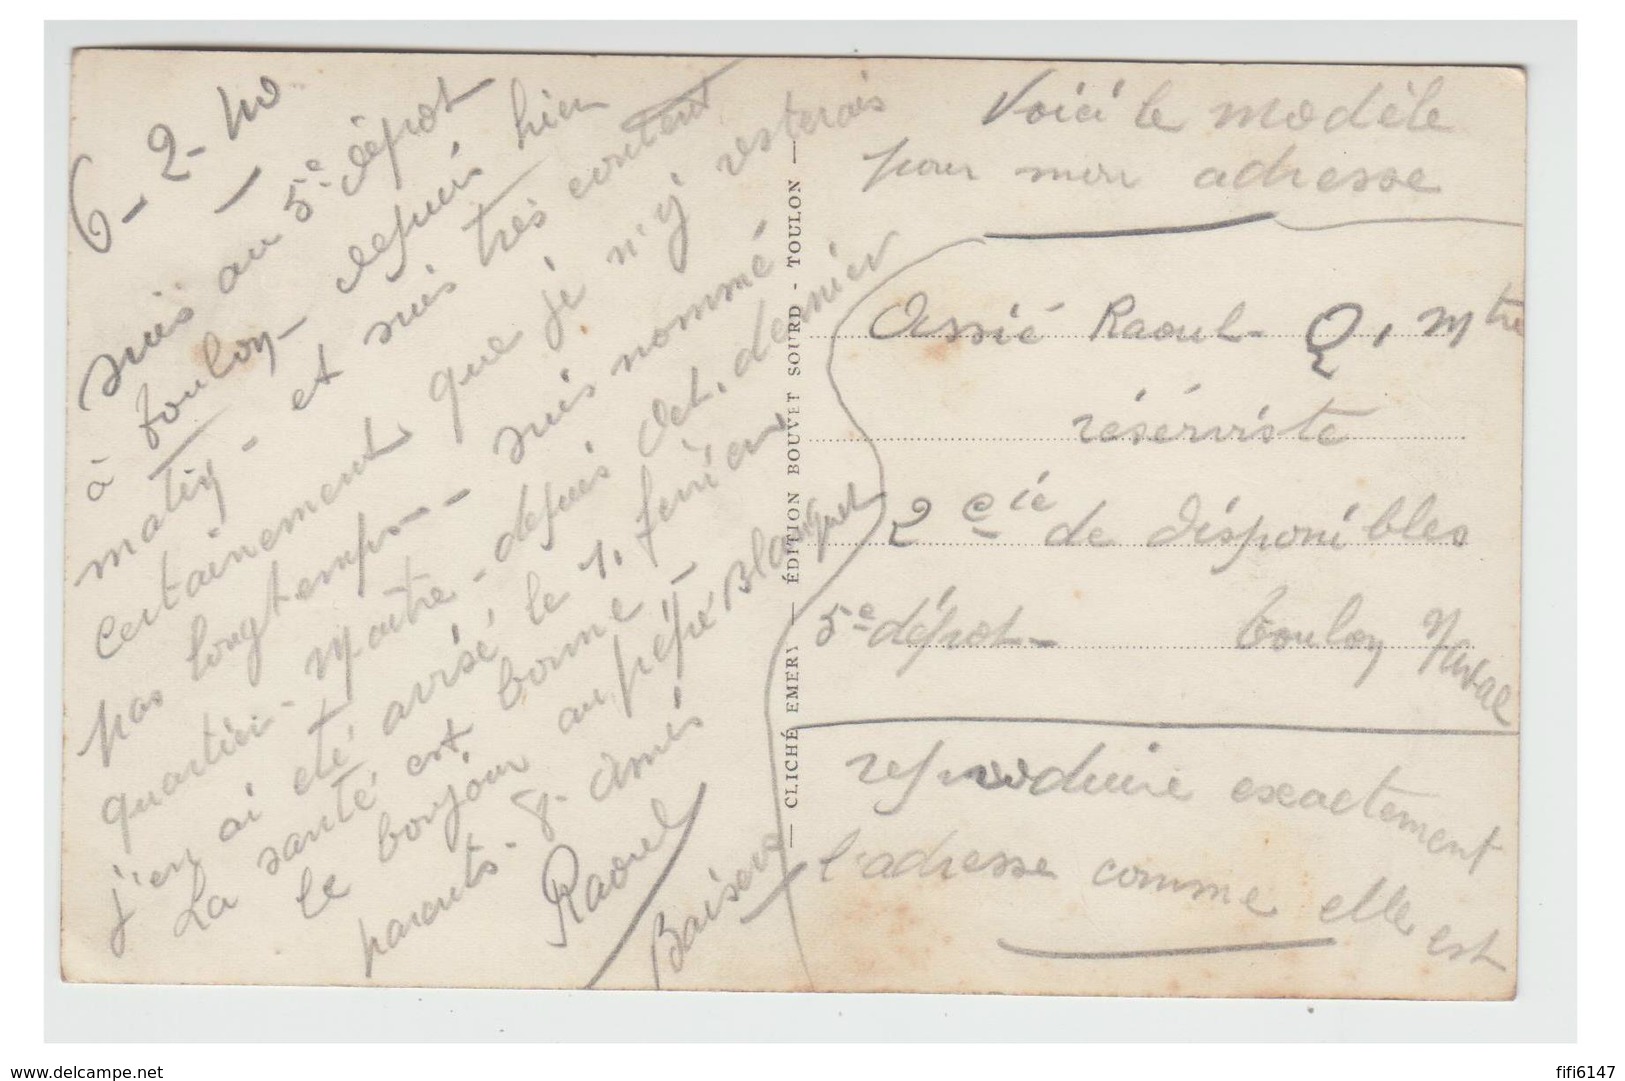 6-2-40
suis au 5e dépot
à Toulon depuis hier
matin - et suis très content
certainement que je n'y resterais
pas longtemps - suis nommé
quartier-maitre - depuis Oct. dernier
j'en ai été avisé le 1. février
La santé est bonne -
le bonjour au pépé Blanquet
parents - & amis
Raoul
Baisers
— CLICHÉ EMERY — ÉDITION BOUVET SOURD - TOULON —
Voici le modèle
pour mon adresse
Assié Raoul - Q. Mtre
réserviste
2e Cie de disponibles
5e dépot - Toulon Naval
reproduire exactement
l'adresse comme elle est
www.delcampe.net
fifi6147